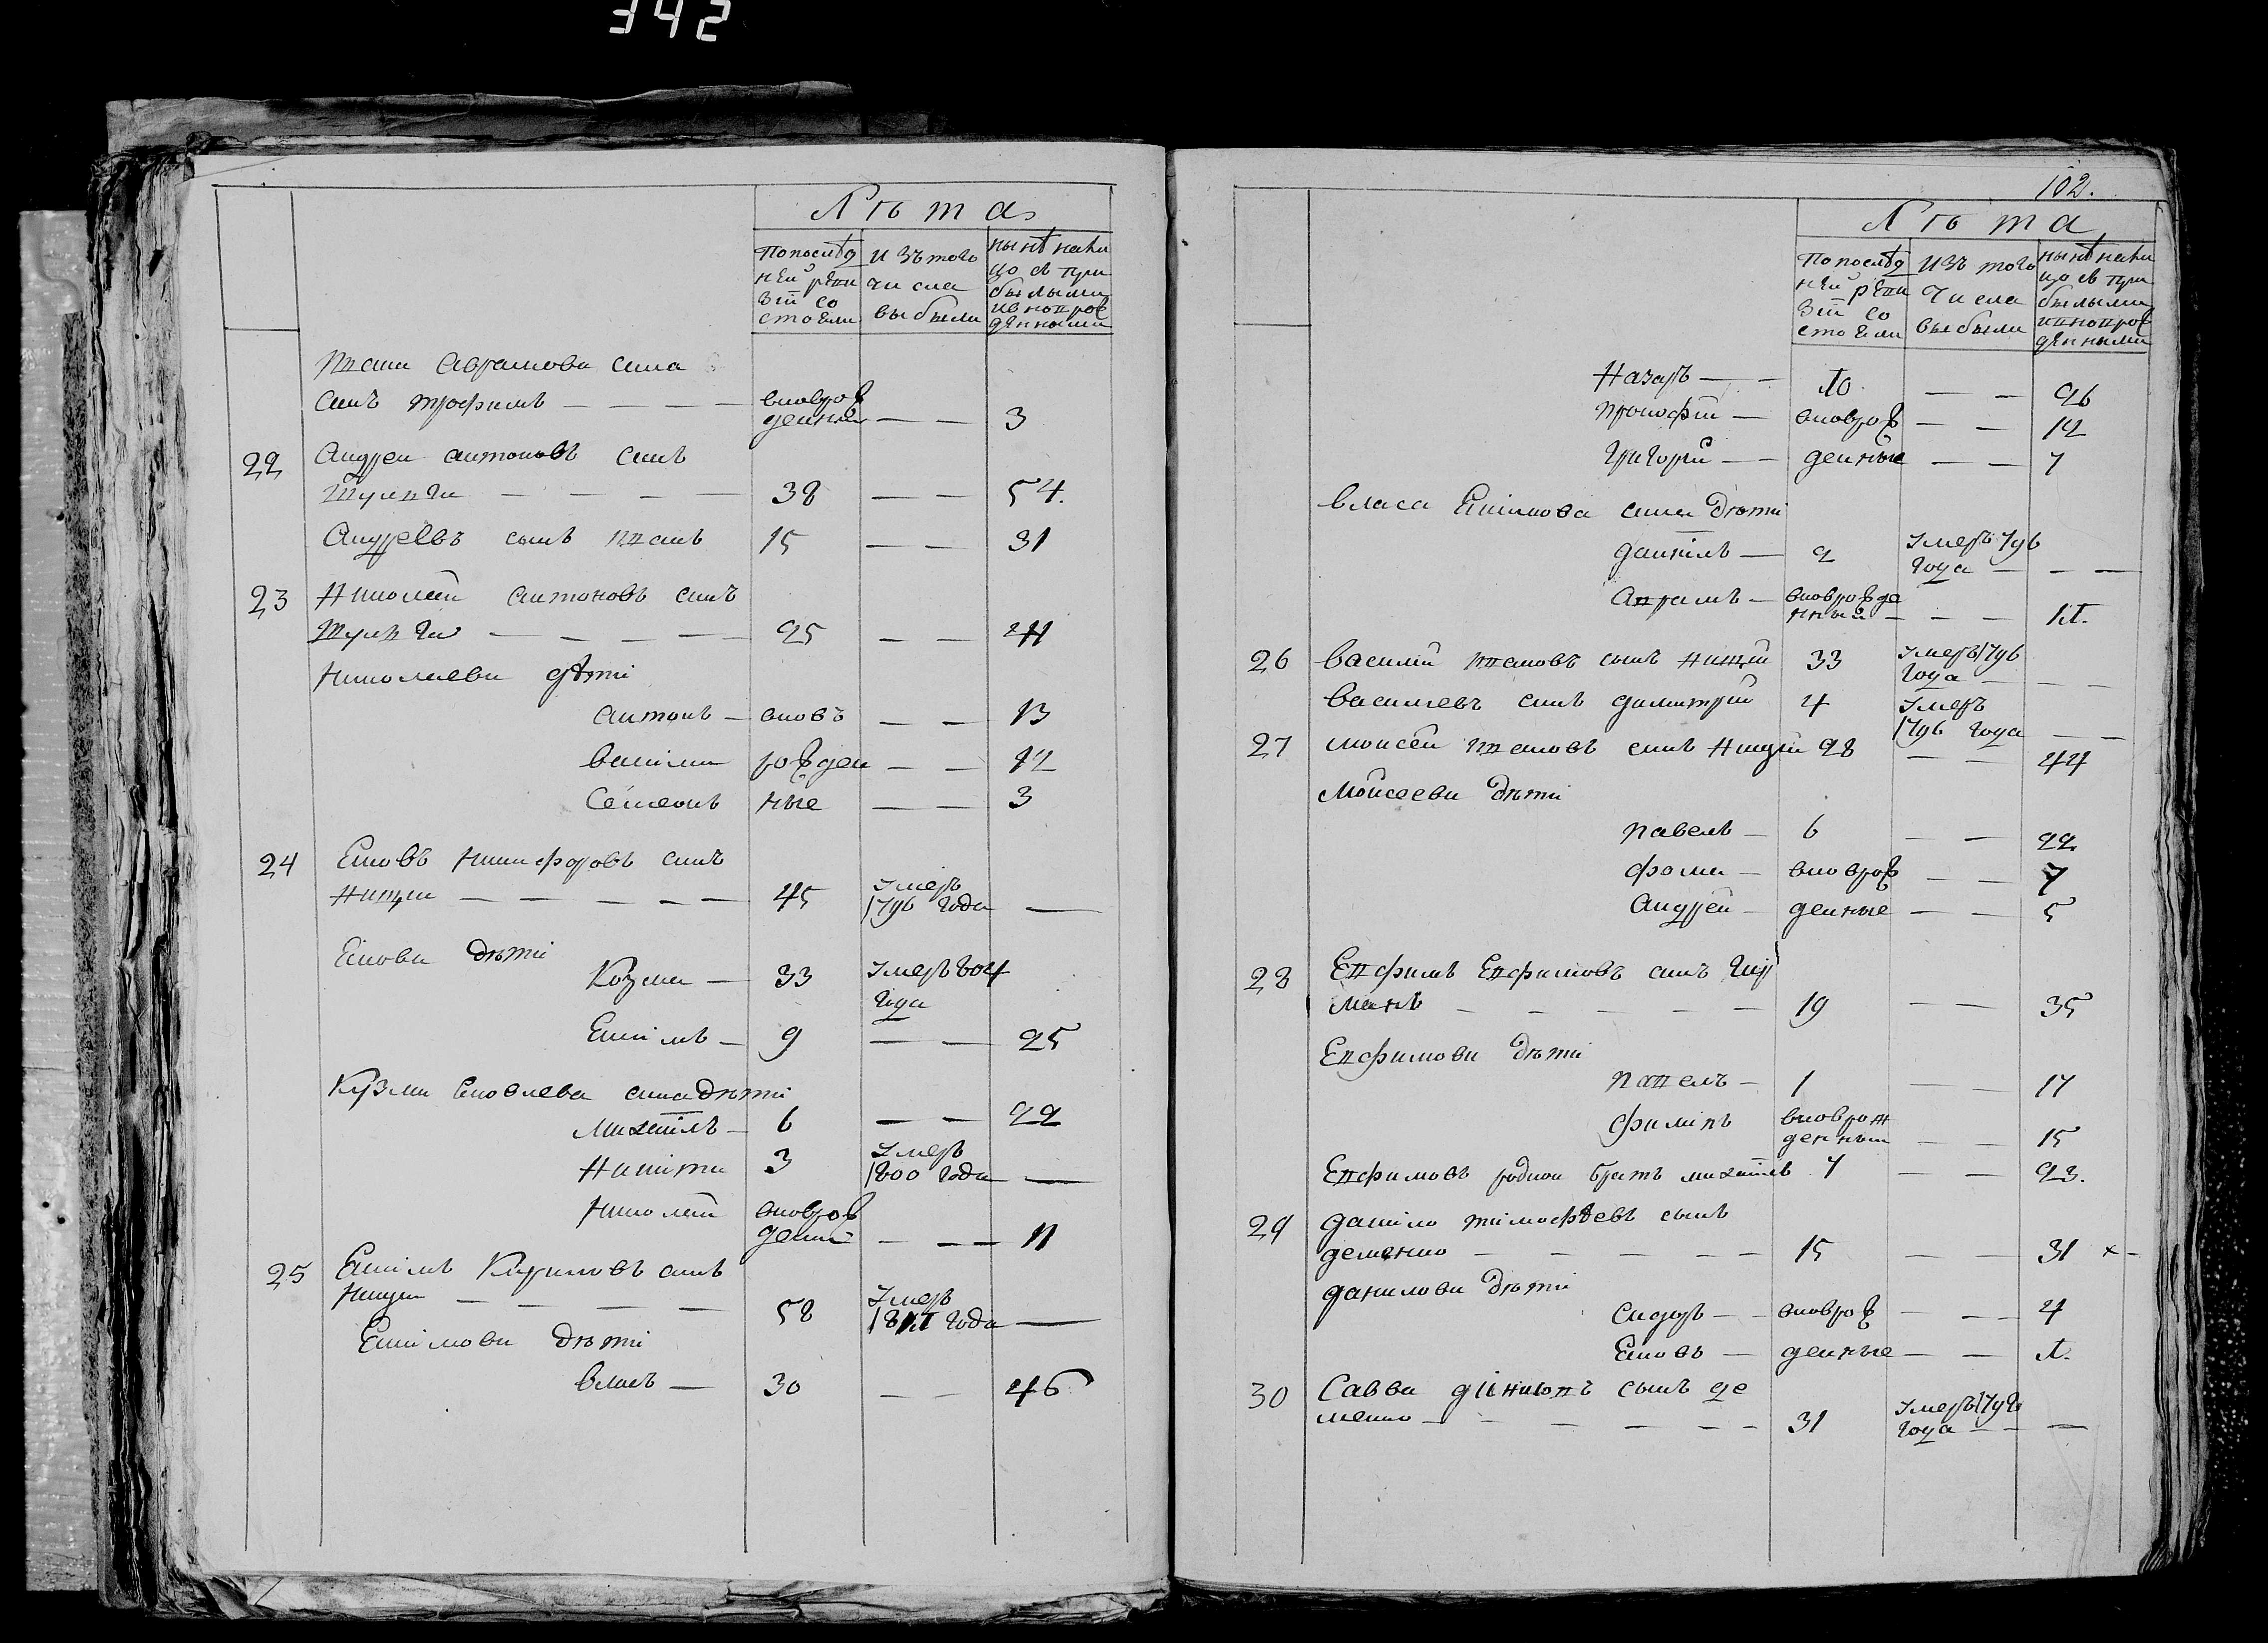 342
Лѣта
Попослѣд ней реви зіи со стояли
изътого числа выбыли
нынѣ нали цо съ при былыми ивновърож денными
Ивана Аврамова сина
синъ трофимъ — — — — вновърож денныи — — 3
22 Андреи антоновъ синъ
Шуляги — — — — 38 — — 54.
Андреевъ сынъ иванъ 15 — — 31
23 Николай антоновъ синъ
Шуляги — — — — 25 — — 41
Николаеви дѣти
антонъ — вновъ — — 13
василии рожден — — 12
Семенъ ные — — 3
24 Яковъ никифоровъ синъ
Нищии — — — — — 45 умеръ 1796 года —
Якови дѣти
Козма — 33 умеръ 804 года
Якимъ — 9 — — 25
Кузми Яковлева сина дѣти
михаилъ — 6 — — 22
Никита 3 умеръ 1800 года —
Николай вновърож дений — — — 11
25 Якимъ Кириловъ синъ
Нищи — — — — 58 умеръ года —
Якимови дѣти
власъ — 30 — — 46
102.
Лѣта
Попослѣд ней реви зіи со стояли
изъ того числа выбыли
нынѣ нали цо съ при былыми ивновърож денными
Назаръ — — 10 — — 26
прокофій — вновърож — — 12
григорій — — денные — — 7
власа Якимова сина дѣти
данилъ — 2 умеръ 796 года — — —
Аврамъ — вновърожде нный — — —
26 василий ивановъ сынъ нищій 33 умеръ 1796 года — — —
василиевъ синъ димитрий 4 умеръ 1796 года — —
27 моисей ивановъ синъ Нищии 28 — — 44
Мойсееви дѣти
павелъ — 6 — — 22
фома — вновърож — — 7
Андрей — денные — — 5
28 Евфимъ Евфимовъ синъ гир
манъ — — — — — 19 — — 35
Евфимови дѣти
павелъ — 1 — — 17
филипъ вноврож денныи — — 15
Евфимовъ родной братъ михаилъ 7 — — 23.
29 данило тимофѣевъ сынъ
деменко — — — — — 15 — — 31 х -
данилови дѣти
Сидоръ — — вновърож — — — 4
Яковъ — денные — —
30 Савва сынъ де
менко — — — — — — 31 умеръ года — — —